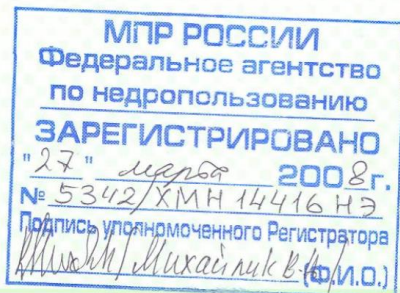 МПР РОССИИ
Федеральное агентство
по недропользованию
ЗАРЕГИСТРИРОВАНО
"27" марта 2008г.
№ 5342/ХМН 14416 НЭ
Подпись уполномоченного Регистратора
/Михайлик В.Н./ (Ф.И.О.)